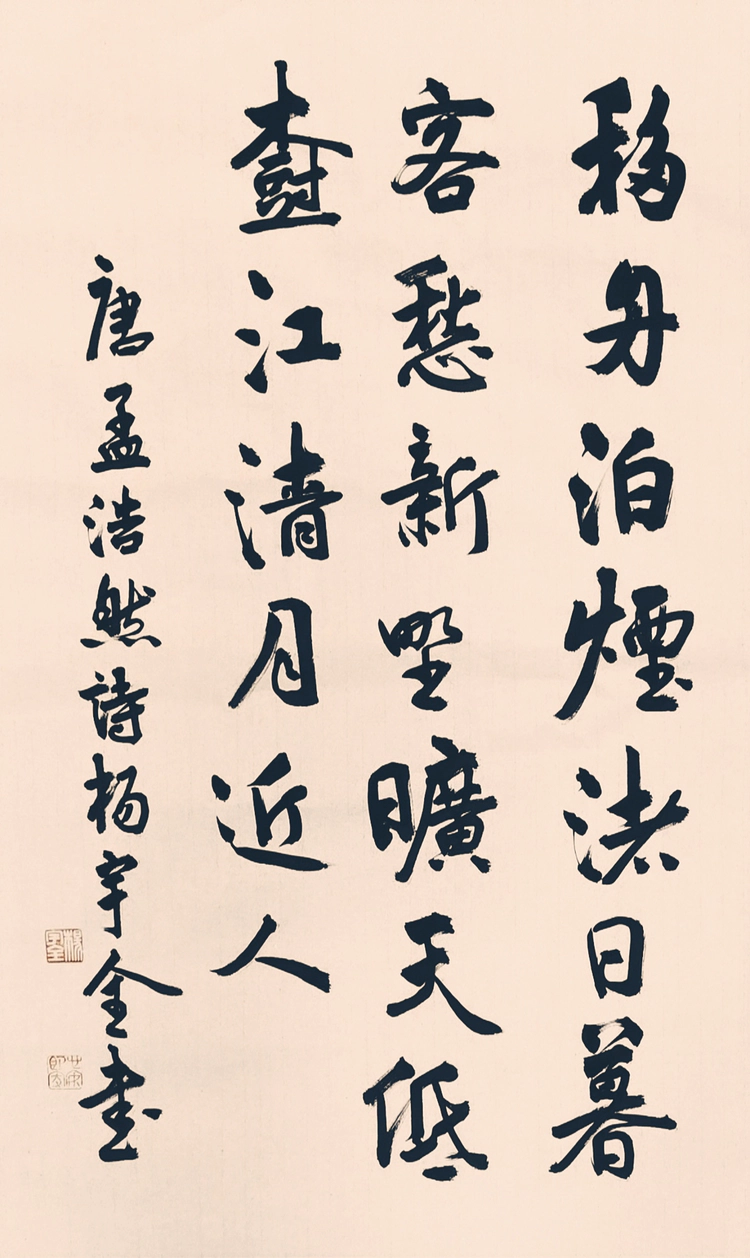 移舟泊煙渚日暮
客愁新野曠天低
樹江清月近人
唐孟浩然詩楊宇全書